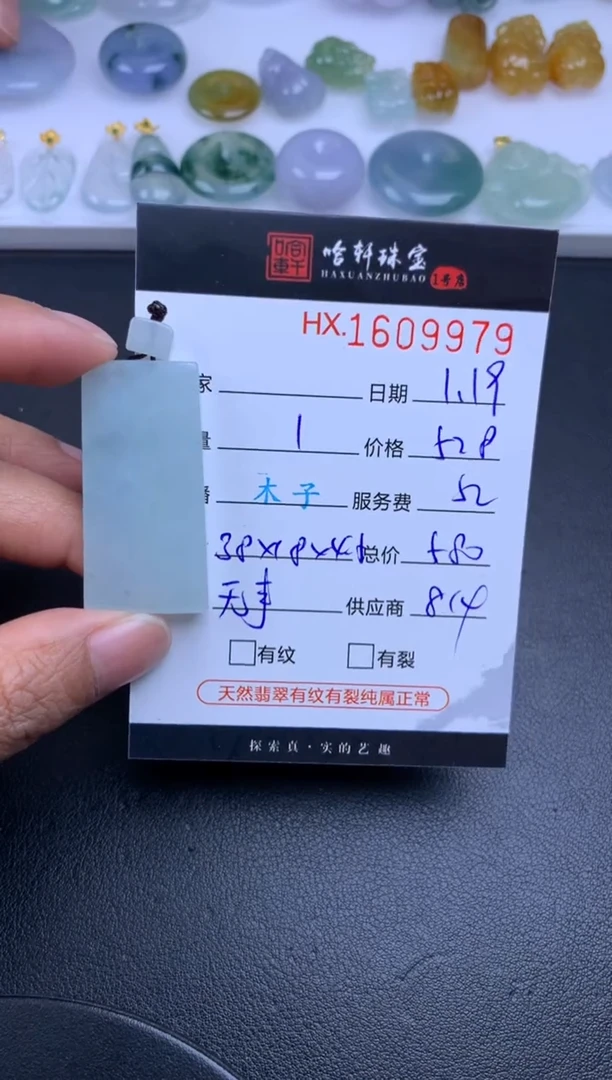 哈轩珠宝
HAXUANZHUBAO 1号店
HX.1609979
家 日期 1.19
量 1 价格 528
木子 服务费 52
总价 580
无事 供应商 814
有纹 有裂
天然翡翠有纹有裂纯属正常
探索真·实的艺趣